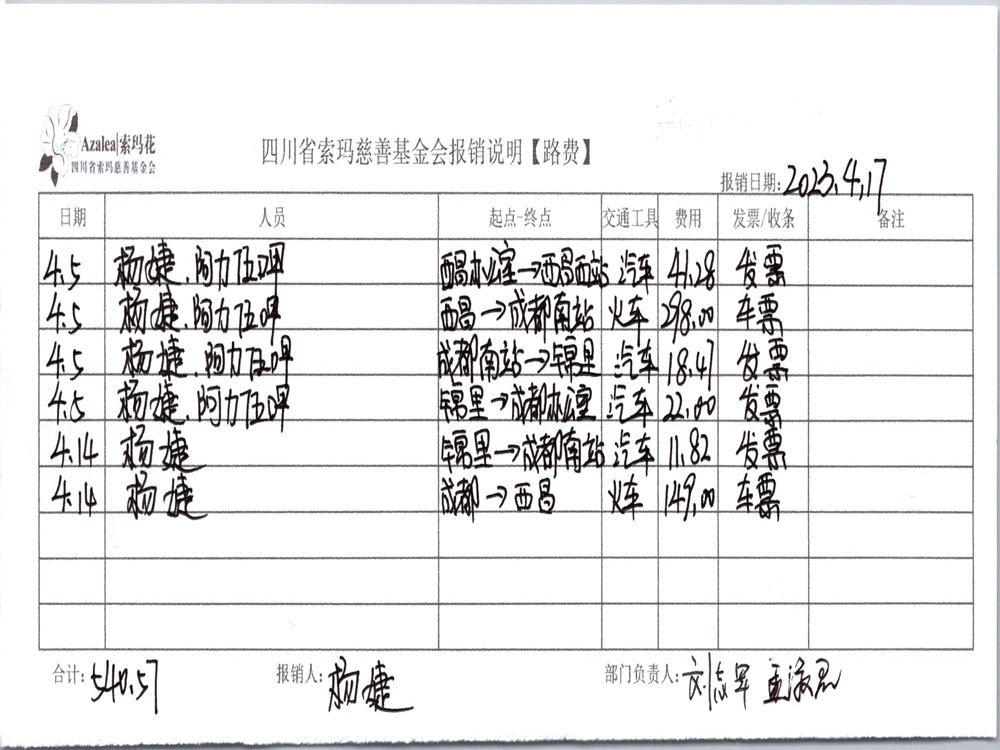 Azalea|索玛花
四川省索玛慈善基金会
四川省索玛慈善基金会报销说明【路费】
报销日期: 2023.4.17
日期 人员 起点-终点 交通工具 费用 发票/收条 备注
4.5 杨婕、阿力伍呷 西昌办公室→西昌西站 汽车 41.28 发票
4.5 杨婕、阿力伍呷 西昌→成都南站 火车 298.00 车票
4.5 杨婕、阿力伍呷 成都南站→锦里 汽车 18.47 发票
4.5 杨婕、阿力伍呷 锦里→成都办公室 汽车 22.00 发票
4.14 杨婕 锦里→成都南站 汽车 11.82 发票
4.14 杨婕 成都→西昌 火车 149.00 车票
合计: 540.57 报销人: 杨婕 部门负责人: 刘志军